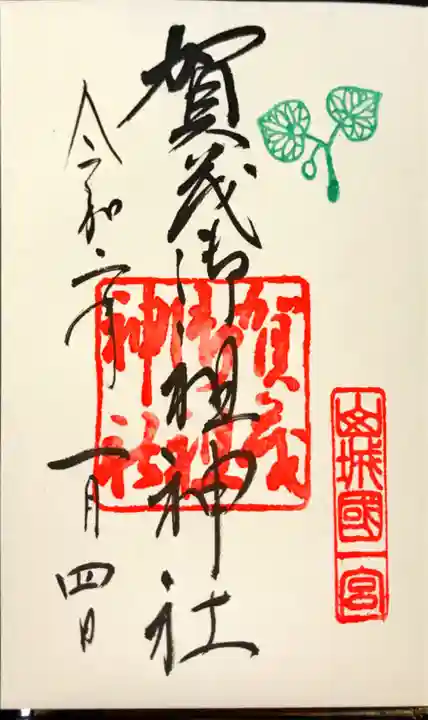 山城國一宮
賀茂御祖神社
賀茂御祖神社
令和二年
一月四日